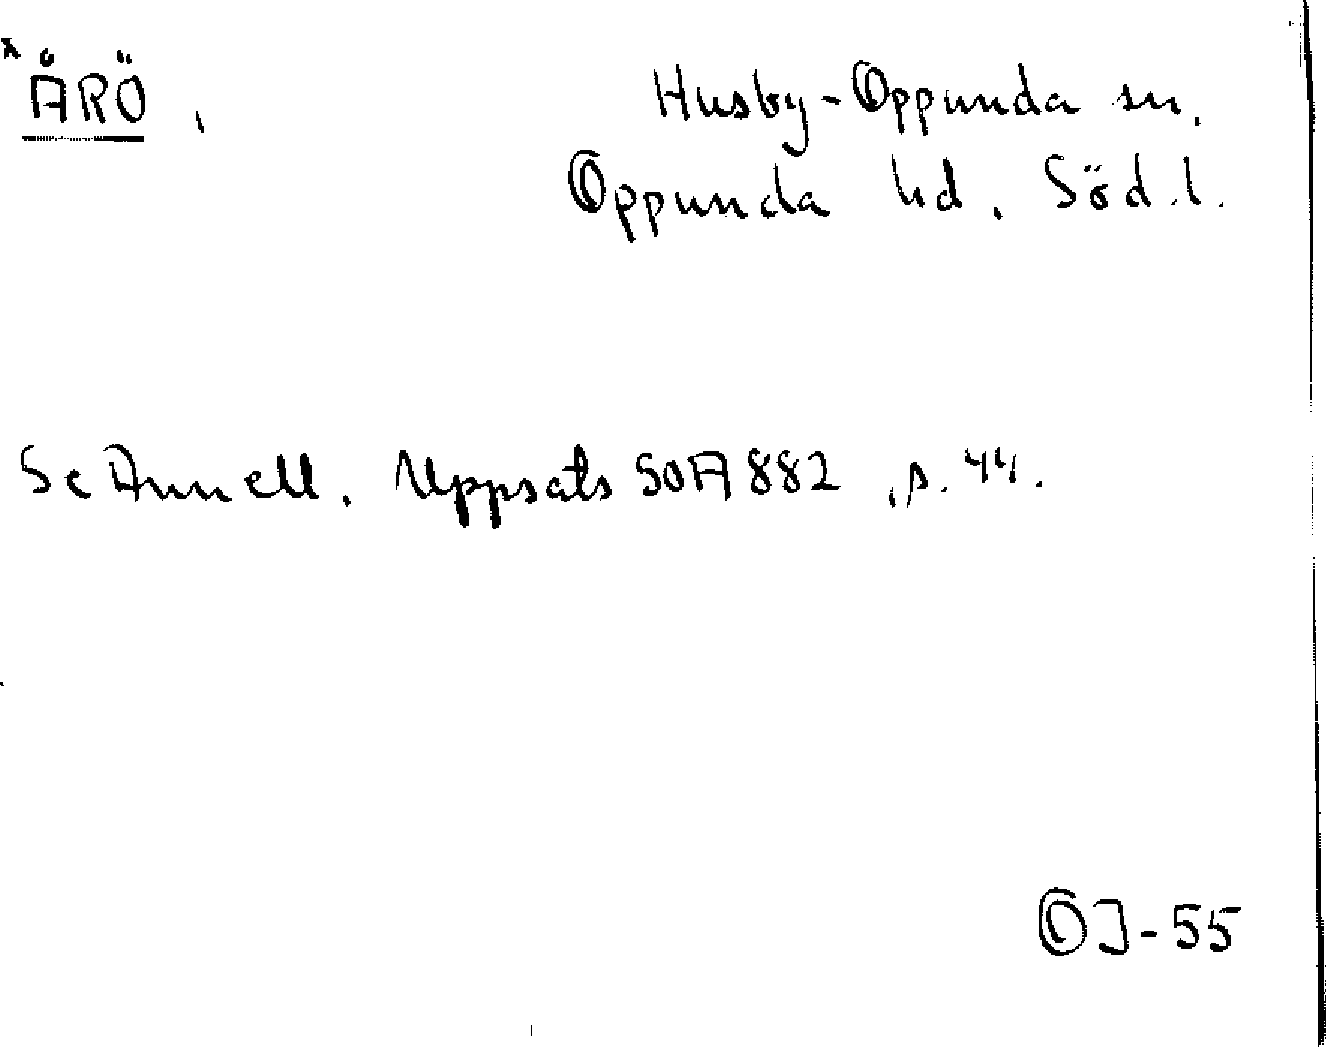 x ÅRÖ,
Husby-Oppunda sn.
Oppunda hd. Söd.l.
Se Annell. Uppsats SOA 882, s. 44.
OJ-55